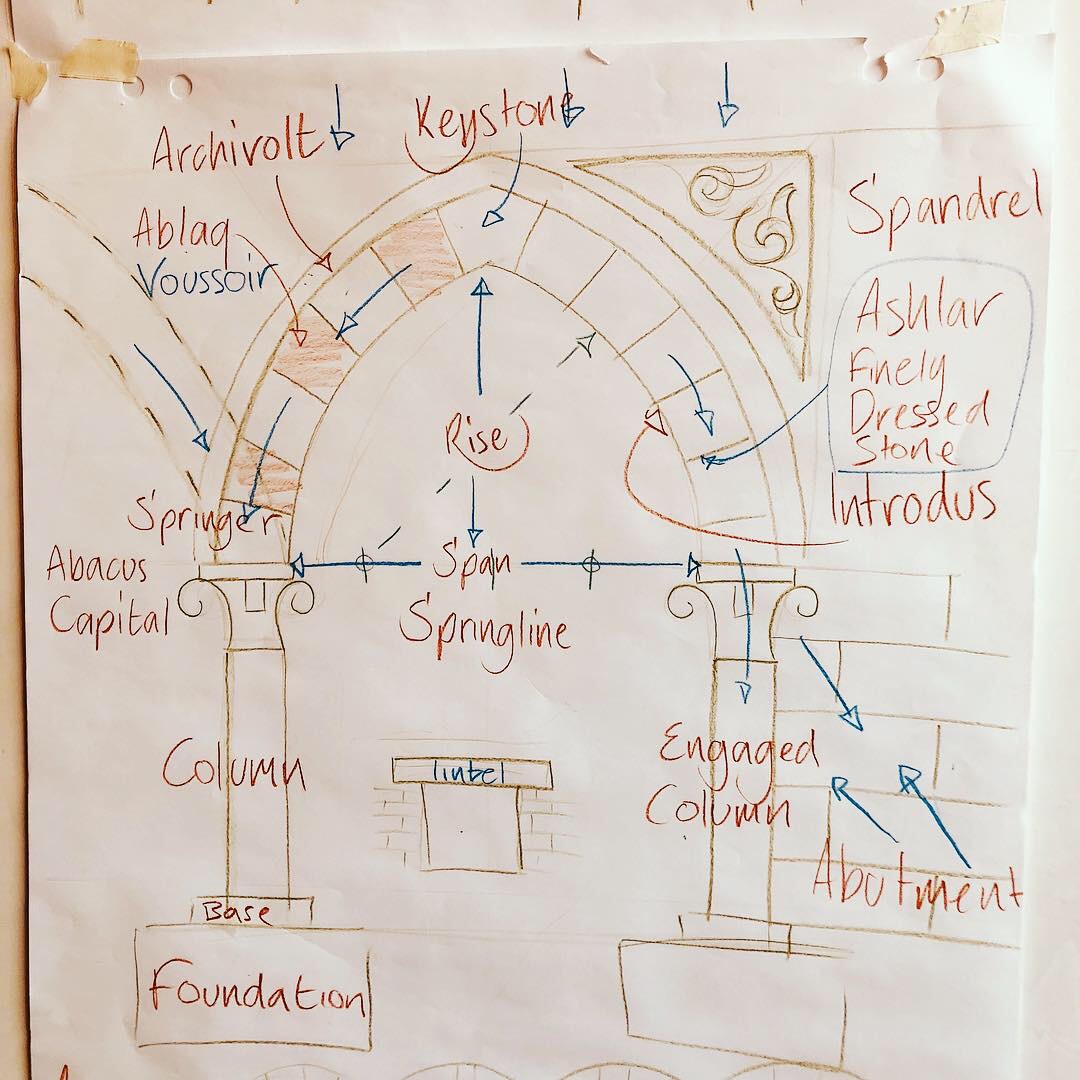 Keystone
Archivolt
Ablaq
Voussoir
Spandrel
Ashlar
Finely
Dressed
Stone
Rise
Introdus
Springer
Abacus
Capital
Span
Springline
Column
lintel
Engaged
Column
Abutment
Base
Foundation